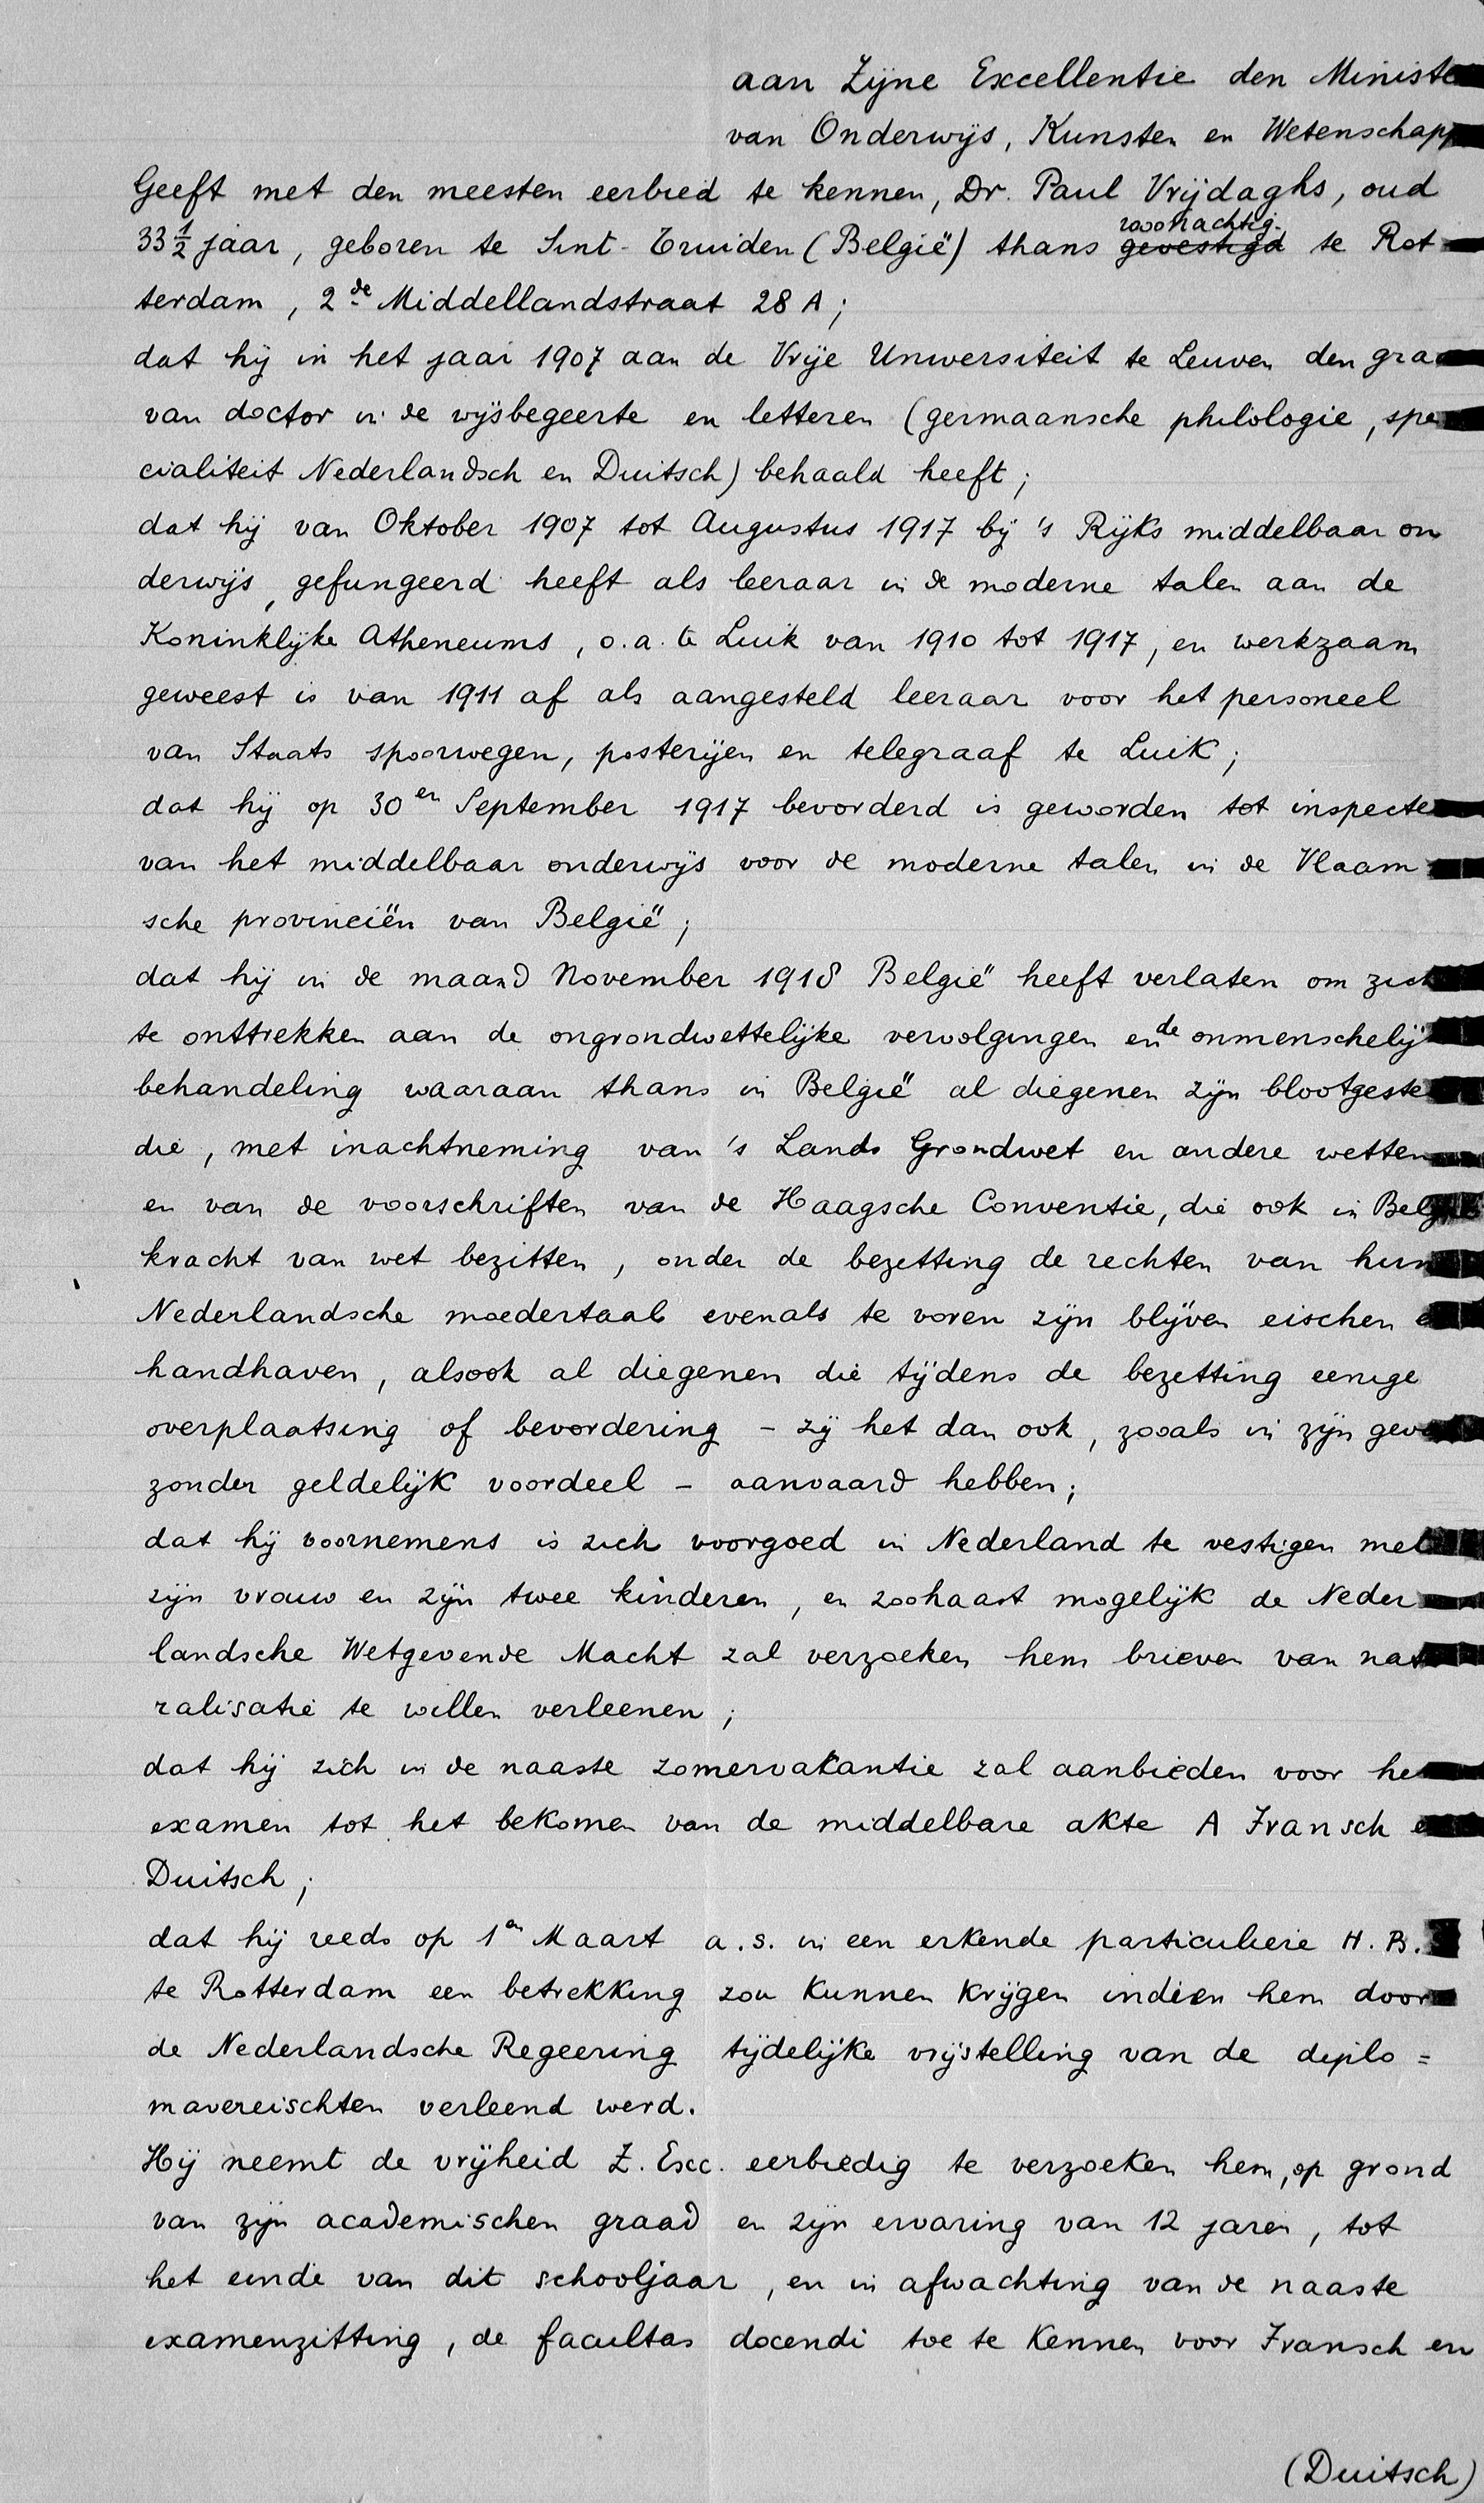 aan Zijne Excellentie den Ministe
van Onderwijs, Kunsten en Wetenschapp
Geeft met den meesten eerbied te kennen, Dr. Paul Vrijdaghs, oud
woonachtig
33 1/2 jaar, geboren te Sint-Truiden (België) thans gevestigd te Rot
terdam, 2de Middellandstraat 28 A;
dat hij in het jaar 1907 aan de Vrije Universiteit te Leuven den graa
van doctor in de wijsbegeerte en letteren (germaansche philologie, spe
cialiteit Nederlandsch en Duitsch) behaald heeft;
dat hij van Oktober 1907 tot Augustus 1917 bij 's Rijks middelbaar on
derwijs, gefungeerd heeft als leeraar in de moderne talen aan de
Koninklijke Atheneums, o.a. te Luik van 1910 tot 1917, en werkzaam
geweest is van 1911 af als aangesteld leeraar voor het personeel
van Staats spoorwegen, posterijen en telegraaf te Luik;
dat hij op 30en September 1917 bevorderd is geworden tot inspecte
van het middelbaar onderwijs voor de moderne talen in de Vlaam
sche provinciën van België;
dat hij in de maand November 1918 België heeft verlaten om zich
te onttrekken aan de ongrondwettelijke vervolgingen en de onmenschelij
behandeling waaraan thans in België al diegenen zijn blootgeste
die, met inachtneming van 's Lands Grondwet en andere wetten
en van de voorschriften van de Haagsche Conventie, die ook in Belg
kracht van wet bezitten, onder de bezetting de rechten van hun
Nederlandsche moedertaal evenals te voren zijn blijven eischen e
handhaven, alsook al diegenen die tijdens de bezetting eenige
overplaatsing of bevordering - zij het dan ook, zooals in zijn geva
zonder geldelijk voordeel - aanvaard hebben;
dat hij voornemens is zich voorgoed in Nederland te vestigen met
zijn vrouw en zijn twee kinderen, en zoohaast mogelijk de Neder
landsche Wetgevende Macht zal verzoeken hem brieven van nat
ralisatie te willen verleenen;
dat hij zich in de naaste zomervakantie zal aanbieden voor he
examen tot het bekomen van de middelbare akte A Fransch e
Duitsch;
dat hij reeds op 1en Maart a.s. in een erkende particuliere H.B.
te Rotterdam een betrekking zou kunnen krijgen indien hem door
de Nederlandsche Regeering tijdelijke vrijstelling van de diplo=
mavereischten verleend werd.
Hij neemt de vrijheid Z. Exc. eerbiedig te verzoeken hem, op grond
van zijn academischen graad en zijn ervaring van 12 jaren, tot
het einde van dit schooljaar, en in afwachting van de naaste
examenzitting, de facultas docendi toe te kennen voor Fransch en
(Duitsch)